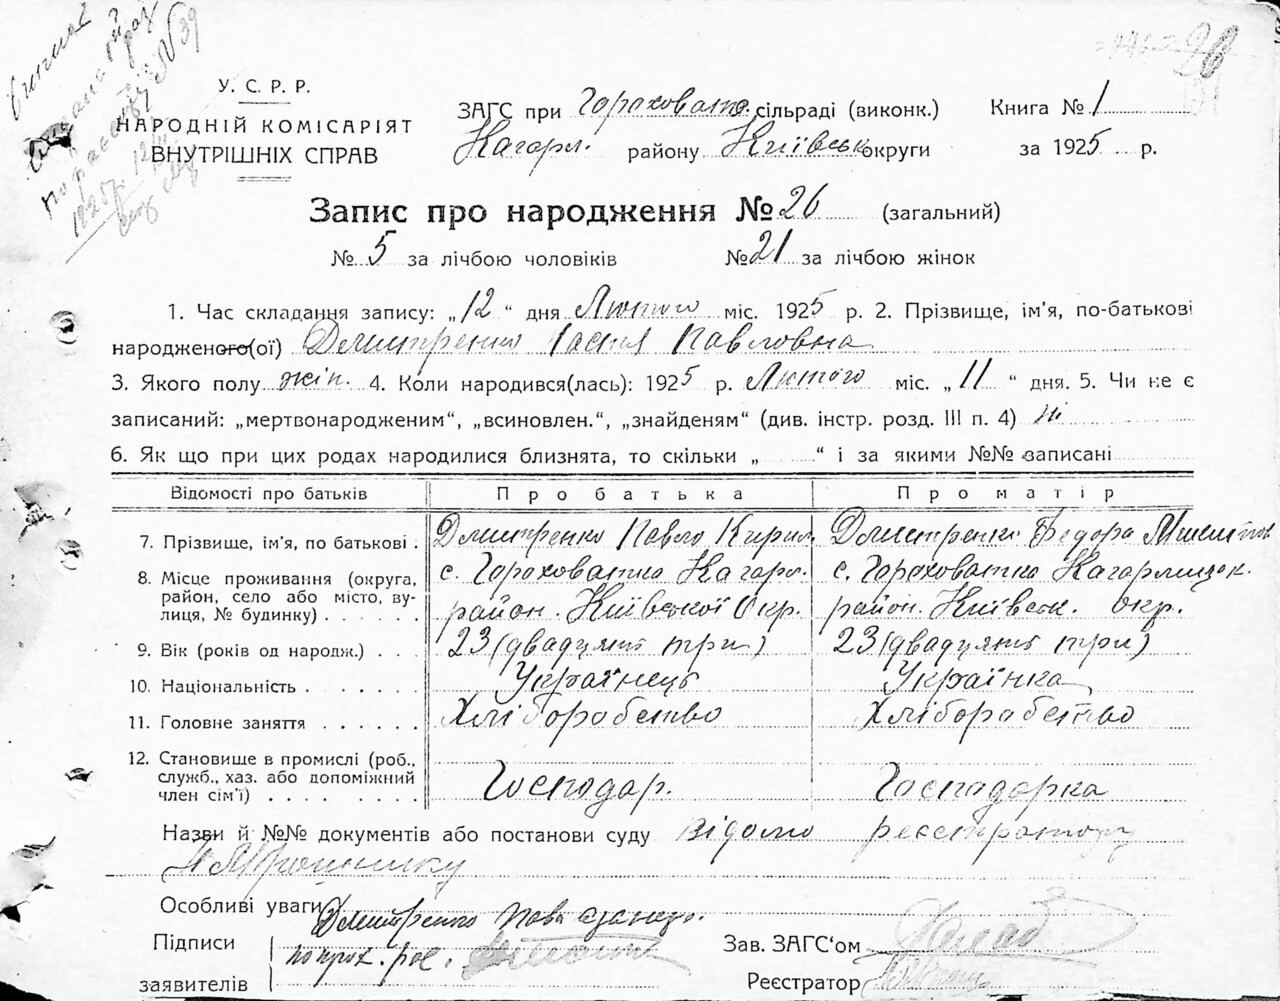 У. С. Р. Р.
НАРОДНІЙ КОМІСАРІЯТ
ВНУТРІШНІХ СПРАВ
ЗАГС при Гороховатс. сільраді (виконк.) Книга № 1
Кагарл. району Київськ округи за 1925 р.
Запис про народження № 26 (загальний)
№ 5 за лічбою чоловіків № 21 за лічбою жінок
1. Час складання запису: „12“ дня Лютого міс. 1925 р. 2. Прізвище, ім'я, по-батькові
народженого(ої) Дмитренко Павловна
3. Якого полу жін. 4. Коли народився(лась): 1925 р. Лютого міс. „11“ дня. 5. Чи не є
записаний: „мертвонародженим“, „всиновлен.“, „знайденям“ (див. інстр. розд. III п. 4) ні
6. Як що при цих родах народилися близнята, то скільки „ “ і за якими №№ записані
Відомості про батьків Про батька Про матір
7. Прізвище, ім'я, по батькові . Дмитренко Павло Кирил. Дмитренко Федора
8. Місце проживання (округа, с. Гороховатка Кагарл. с. Гороховатка Кагарлицьк.
район, село або місто, ву- район. Київської Окр. район. Київськ. Окр.
лиця, № будинку) . . . . . .
9. Вік (років од народж.) . . . 23 (двадцять три) 23 (двадцять три)
10. Національність . . . . . . . Українець Українка
11. Головне заняття . . . . . . Хліборобство Хліборобство
12. Становище в промислі (роб.,
служб., хаз. або допоміжний Господар. Господарка
член сім'ї) . . . . . . . .
Назви й №№ документів або постанови суду Відомо реєстратору
Особливі уваги Дмитренко
Підписи Зав. ЗАГС'ом
заявителів Реєстратор